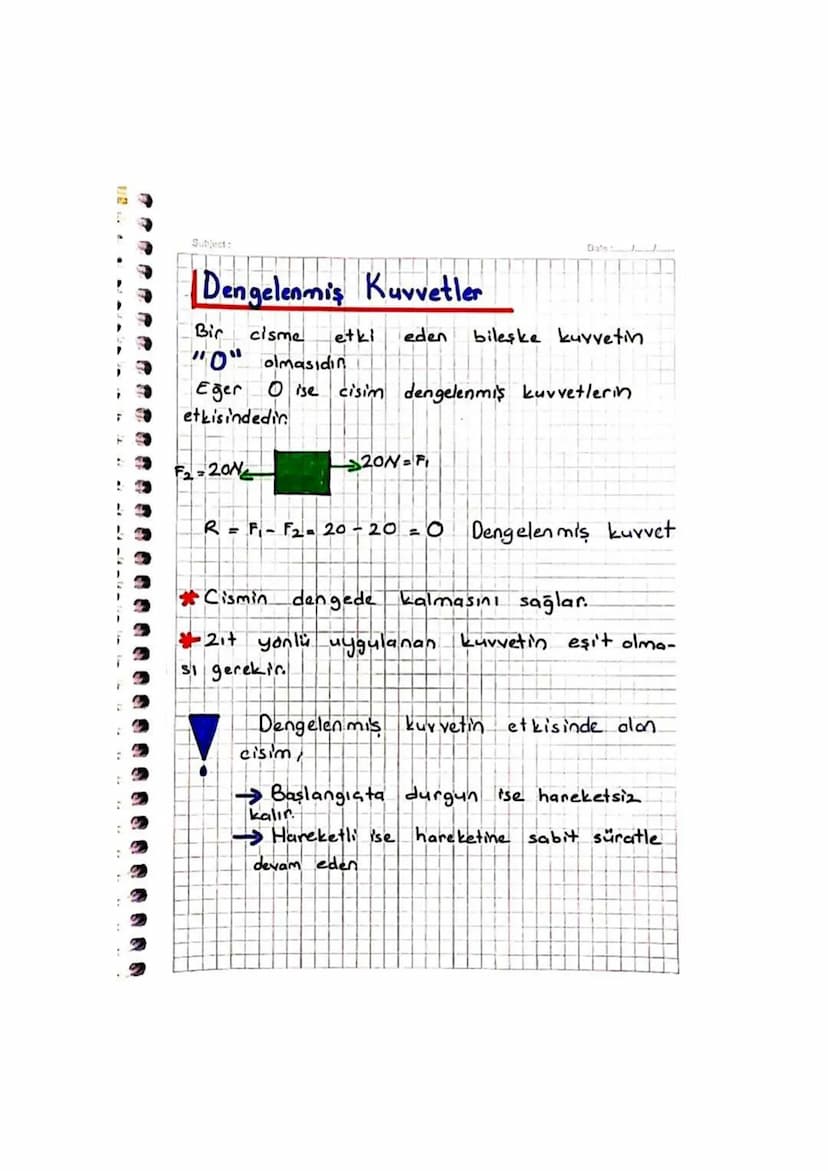 Subject :
Date : ..../..../....
Dengelenmiş Kuvvetler
Bir cisme etki eden bileşke kuvvetin
"0" olmasıdır.
Eğer 0 ise cisim dengelenmiş kuvvetlerin
etkisindedir.
F₂ = 20N 20N = F₁
R = F₁ - F₂ = 20 - 20 = 0 Dengelenmiş kuvvet
* Cismin dengede kalmasını sağlar.
* Zıt yönlü uygulanan kuvvetin eşit olma-
sı gerekir.
! Dengelenmiş kuvvetin etkisinde olan
cisim,
→ Başlangıçta durgun ise hareketsiz
kalır.
→ Hareketli ise hareketine sabit süratle
devam eder